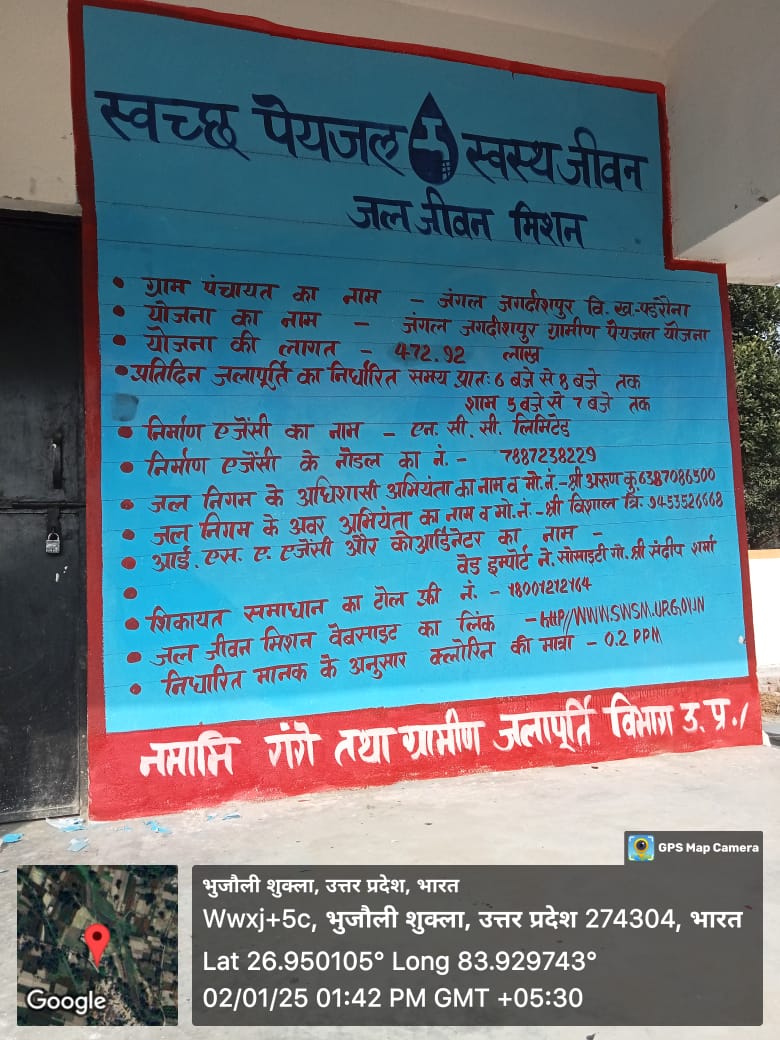 स्वच्छ पेयजल स्वस्थ जीवन
जल जीवन मिशन
• ग्राम पंचायत का नाम – जंगल जगदीशपुर वि. ख.-पडरौना
• योजना का नाम – जंगल जगदीशपुर ग्रामीण पेयजल योजना
• योजना की लागत – 472.92 लाख
• प्रतिदिन जलापूर्ति का निर्धारित समय प्रातः 6 बजे से 8 बजे तक
शाम 5 बजे से 7 बजे तक
• निर्माण एजेंसी का नाम – एन. सी. सी. लिमिटेड
• निर्माण एजेंसी के नोडल का नं. – 7887238229
• जल निगम के अधिशासी अभियंता का नाम व मो. नं.-श्री अरुण कु. 6387086500
• जल निगम के अवर अभियंता का नाम व मो. नं.-श्री विशाल त्रि. 9453526668
• आई. एस. ए. एजेंसी और कोआर्डिनेटर का नाम –
वेड इम्पोर्ट ने. सोसाइटी गो. श्री संदीप शर्मा
• शिकायत समाधान का टोल फ्री नं. – 18001212164
• जल जीवन मिशन वेबसाइट का लिंक – http//WWW.SWSM.UP.GOV.IN
• निर्धारित मानक के अनुसार क्लोरिन की मात्रा – 0.2 PPM
नमामि गंगे तथा ग्रामीण जलापूर्ति विभाग उ. प्र./
GPS Map Camera
भुजौली शुक्ला, उत्तर प्रदेश, भारत
Wwxj+5c, भुजौली शुक्ला, उत्तर प्रदेश 274304, भारत
Lat 26.950105° Long 83.929743°
02/01/25 01:42 PM GMT +05:30
Google